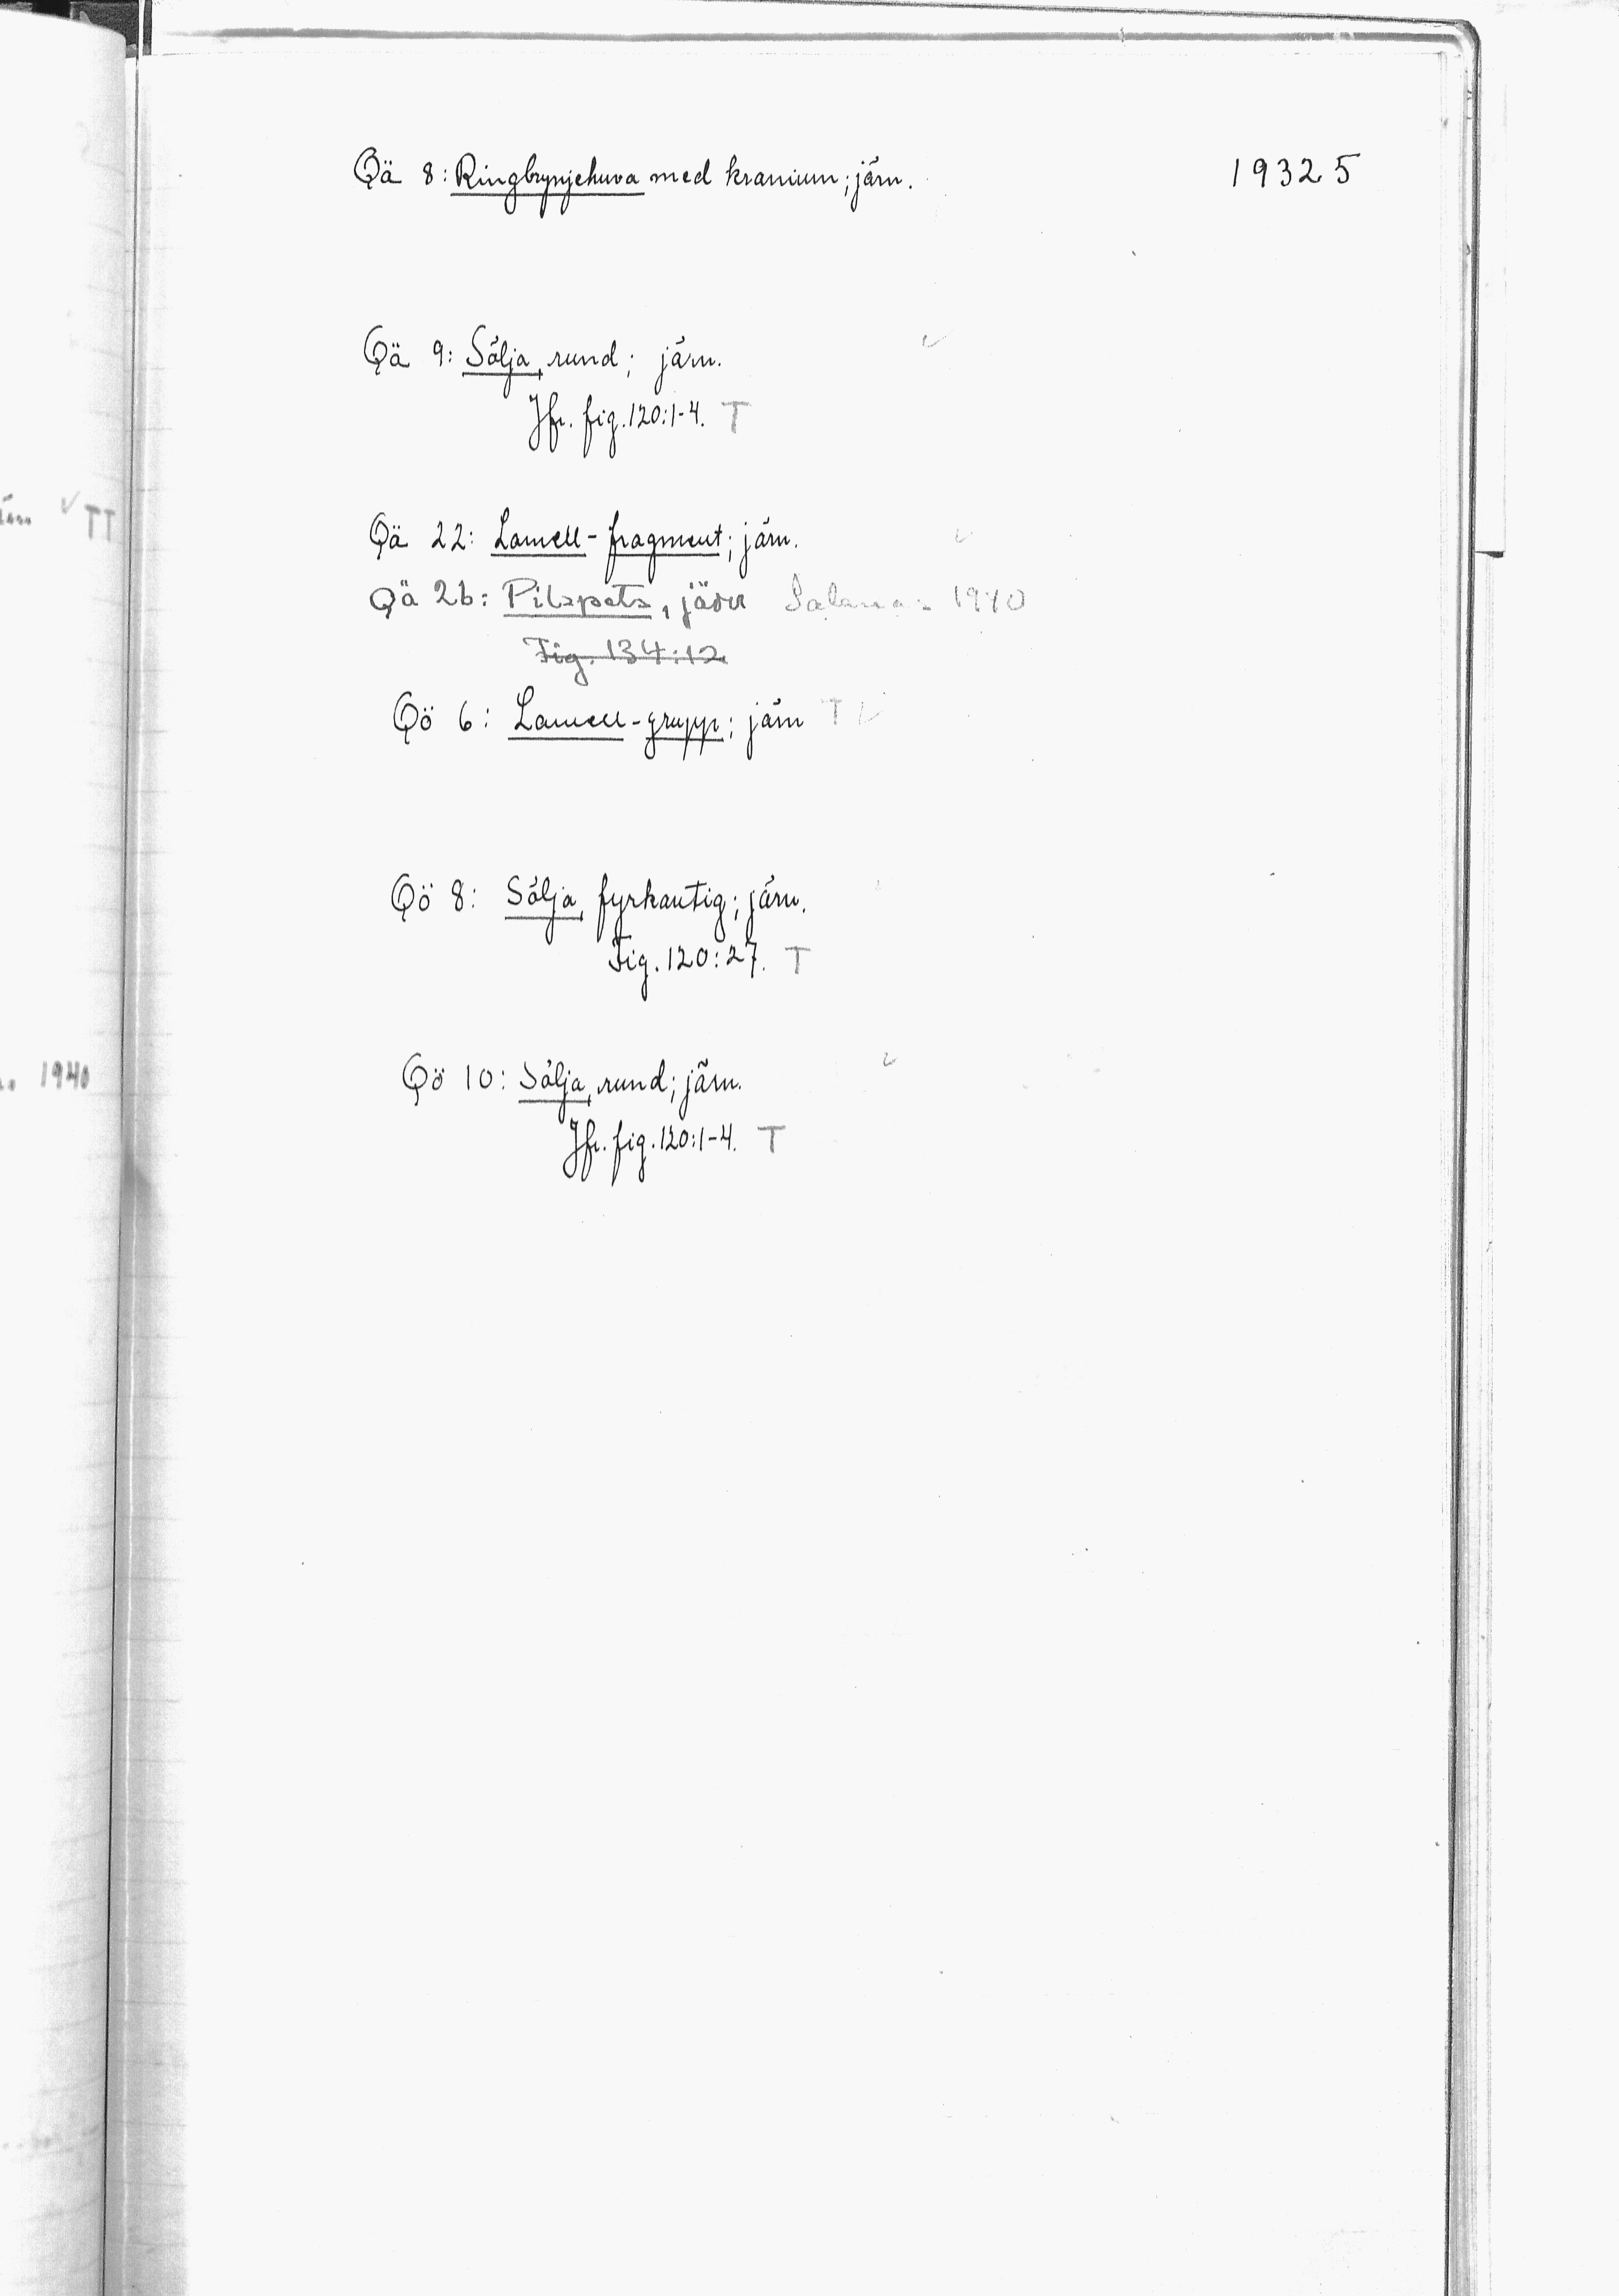 Qä 8: Ringbrynjehuva med kranium; järn. 19325
Qä 9: Sölja, rund; järn. ✓
Jfr. fig. 120:1-4. T
✓ TT
Qä 22: Lamell-fragment; järn. ✓
Qä 26: Pilspets, järn Saknas 1940
Fig. 134:12
Qö 6: Lamell-grupp; järn T ✓
Qö 8: Sölja, fyrkantig; järn.
Fig. 120:27. T
1940
Qö 10: Sölja, rund; järn. ✓
Jfr. fig. 120:1-4. T